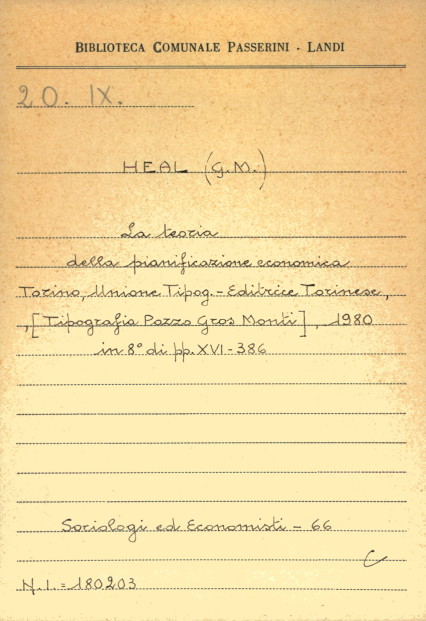 BIBLIOTECA COMUNALE PASSERINI - LANDI
20. IX.
HEAL (G.M.)
La teoria
della pianificazione economica
Torino, Unione Tipog.-Editrice Torinese,
,[Tipografia Pozzo Gros Monti], 1980
in 8° di pp. XVI-386
Sociologi ed Economisti - 66
C
N.I. = 180203